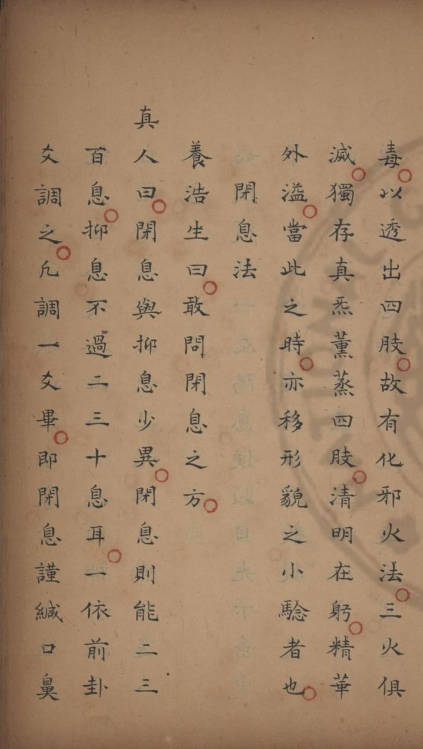 毒以透出四肢故有化邪火法三火俱
滅獨存真炁薰蒸四肢清明在躬精華
外溢當此之時亦移形貌之小騐者也
閉息法
養浩生曰敢問閉息之方
真人曰閉息與抑息少異閉息則能二三
百息抑息不過二三十息耳一依前卦
爻調之凢調一爻畢即閉息謹緘口鼻